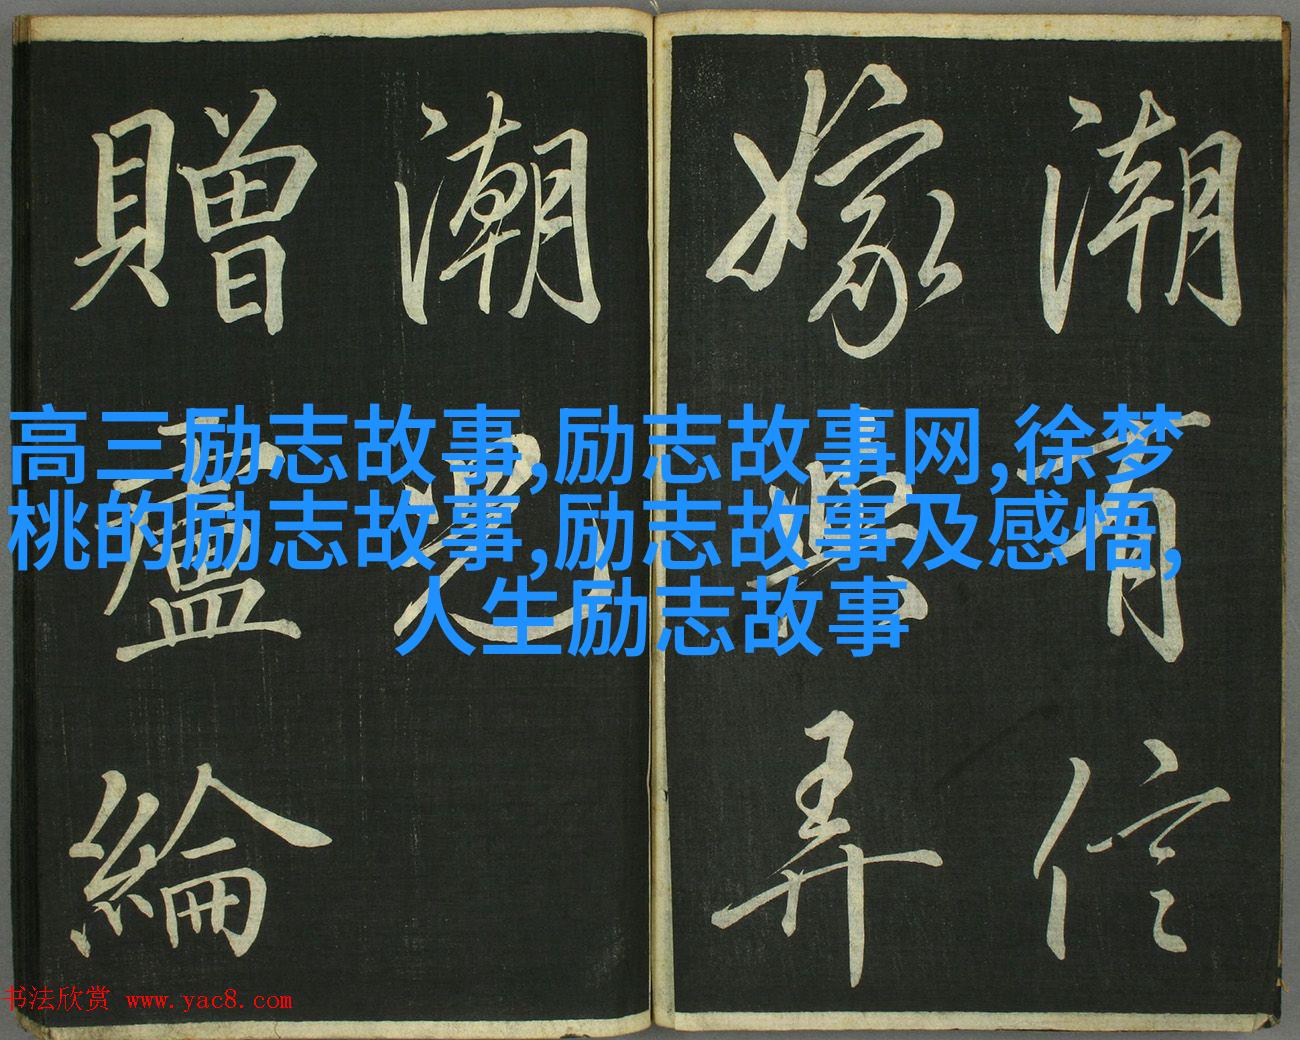 潮有信
嫁與弄
潮兒
贈盧綸
高三励志故事,励志故事网,徐梦
桃的励志故事,励志故事及感悟,
人生励志故事
书法欣赏 www.yac8.com